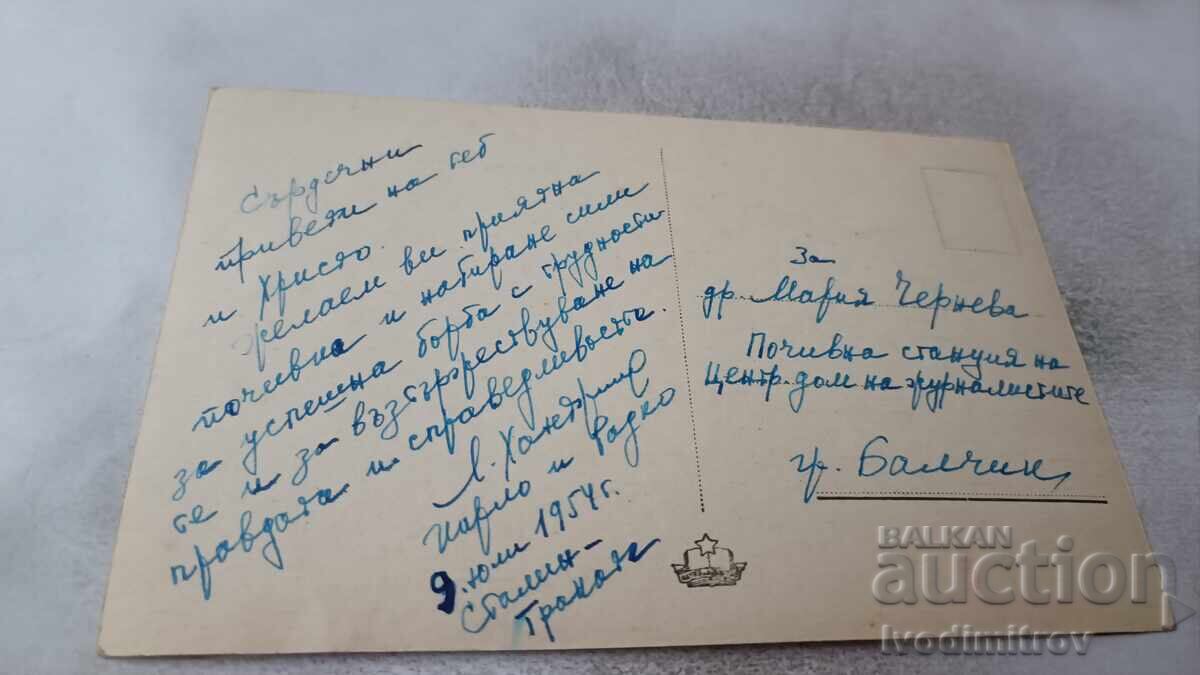 Сърдечни
привети на теб
и Христо.
Желаем ви приятна
почивка и натиране сили
за успешна борба с трудности-
те и за възтържествуване на
правдата и справедливостта.
Карло и Радко
9. юли 1954 г.
Сталин-
За
др. Мария Чернева
Почивна станция на
Центр. дом на журналистите
гр. Балчик
BALKAN
auction
Ivodimitrov